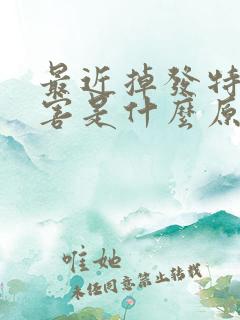 最近掉發特
害是什麼原
唯她
未经同意禁止转载